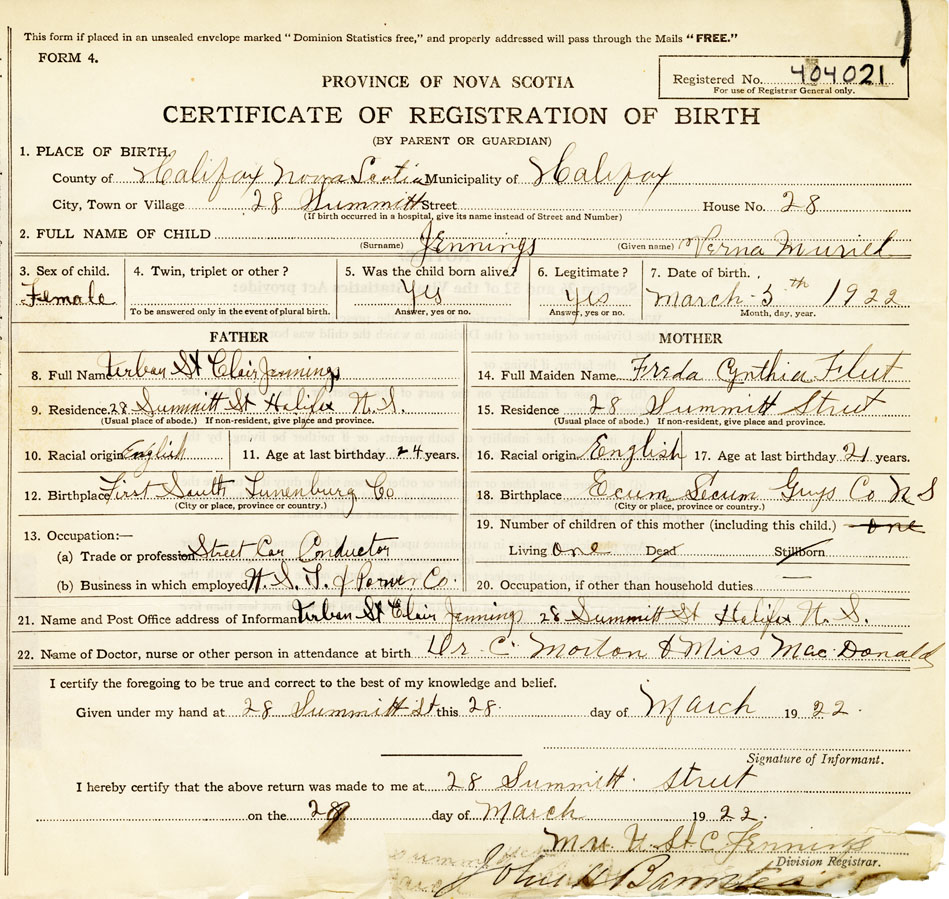 This form if placed in an unsealed envelope marked "Dominion Statistics free," and properly addressed will pass through the Mails "FREE."
FORM 4.
Registered No. 404021
For use of Registrar General only.
PROVINCE OF NOVA SCOTIA
CERTIFICATE OF REGISTRATION OF BIRTH
(BY PARENT OR GUARDIAN)
1. PLACE OF BIRTH
County of Halifax Nova Scotia Municipality of Halifax
City, Town or Village 28 Summitt Street House No. 28
(If birth occurred in a hospital, give its name instead of Street and Number)
2. FULL NAME OF CHILD (Surname) Jennings (Given name) Verna Muriel
3. Sex of child. 4. Twin, triplet or other? 5. Was the child born alive? 6. Legitimate? 7. Date of birth.
Female Yes Yes March 5th 1922
To be answered only in the event of plural birth. Answer, yes or no. Answer, yes or no. Month, day, year.
FATHER MOTHER
8. Full Name Verban St Clair Jennings 14. Full Maiden Name Freda Cynthia
9. Residence 28 Summitt St Halifax N. S. 15. Residence 28 Summitt Street
(Usual place of abode.) If non-resident, give place and province. (Usual place of abode.) If non-resident, give place and province.
10. Racial origin English 11. Age at last birthday 24 years. 16. Racial origin English 17. Age at last birthday 21 years.
12. Birthplace First South Lunenburg Co 18. Birthplace Ecum Secum Guys Co N S
(City or place, province or country.) (City or place, province or country.)
13. Occupation:— 19. Number of children of this mother (including this child.) one
(a) Trade or profession Street Car Conductor Living one Dead Stillborn
(b) Business in which employed N. S. T. & Power Co. 20. Occupation, if other than household duties —
21. Name and Post Office address of Informant Verban St Clair Jennings 28 Summitt St Halifax N. S.
22. Name of Doctor, nurse or other person in attendance at birth Dr. C. Morton & Miss Mac Donald
I certify the foregoing to be true and correct to the best of my knowledge and belief.
Given under my hand at 28 Summitt St this 28 day of March 1922.
Signature of Informant.
I hereby certify that the above return was made to me at 28 Summitt Street
on the 28 day of March 1922.
Mrs V. St C. Jennings
Division Registrar.
John